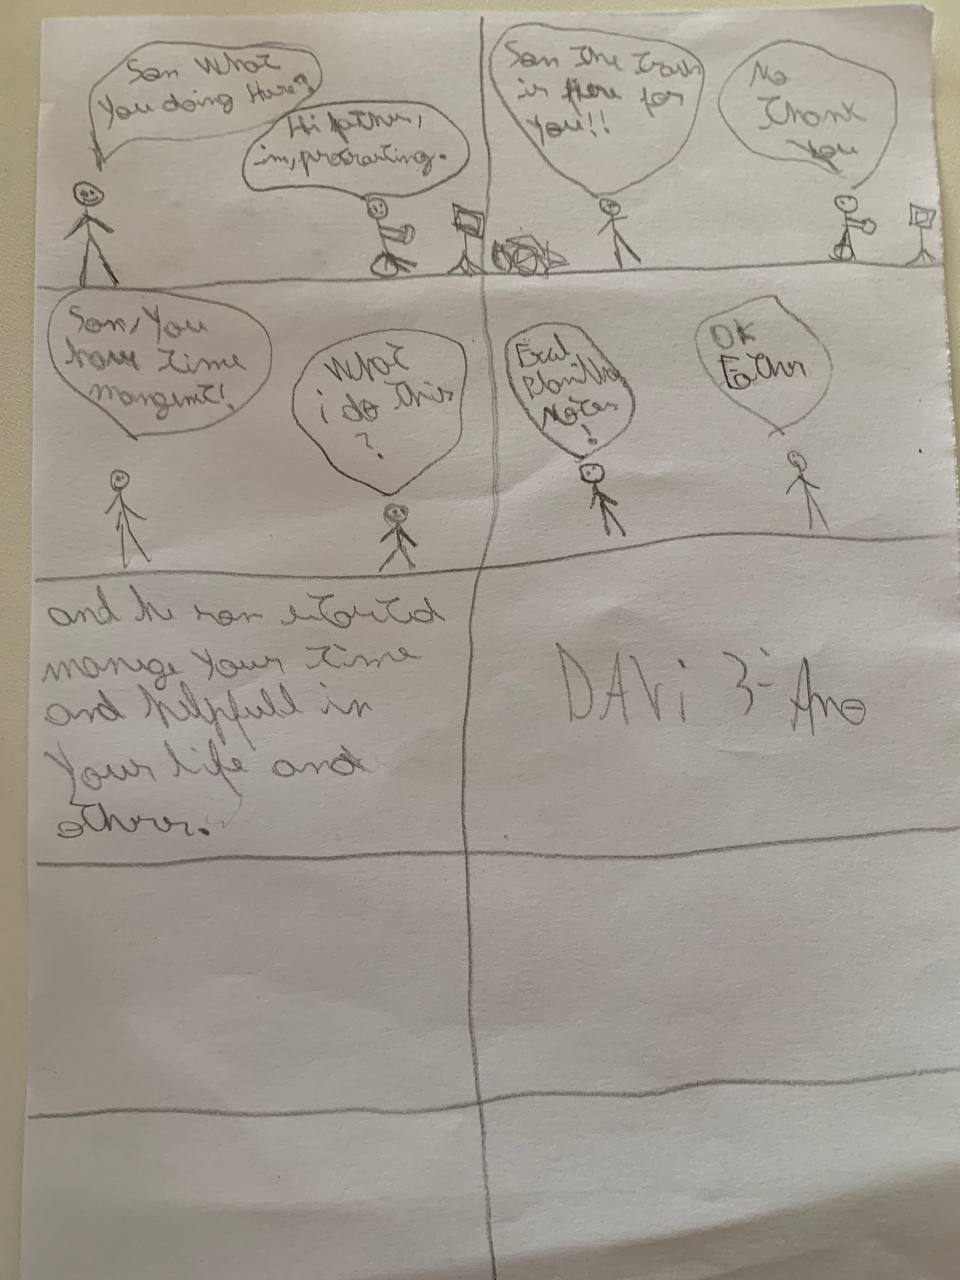 Son What
You doing Here?
Hi father,
im, procrasting.
Son the trash
is Here for
You!!
No
Thank
You
Son, You
have time
mangemt!
What
i do this
?
Notes
!
OK
Father
and he son started
manege Your time
and helpfull in
Your life and
others.
DAVi 3º Ano